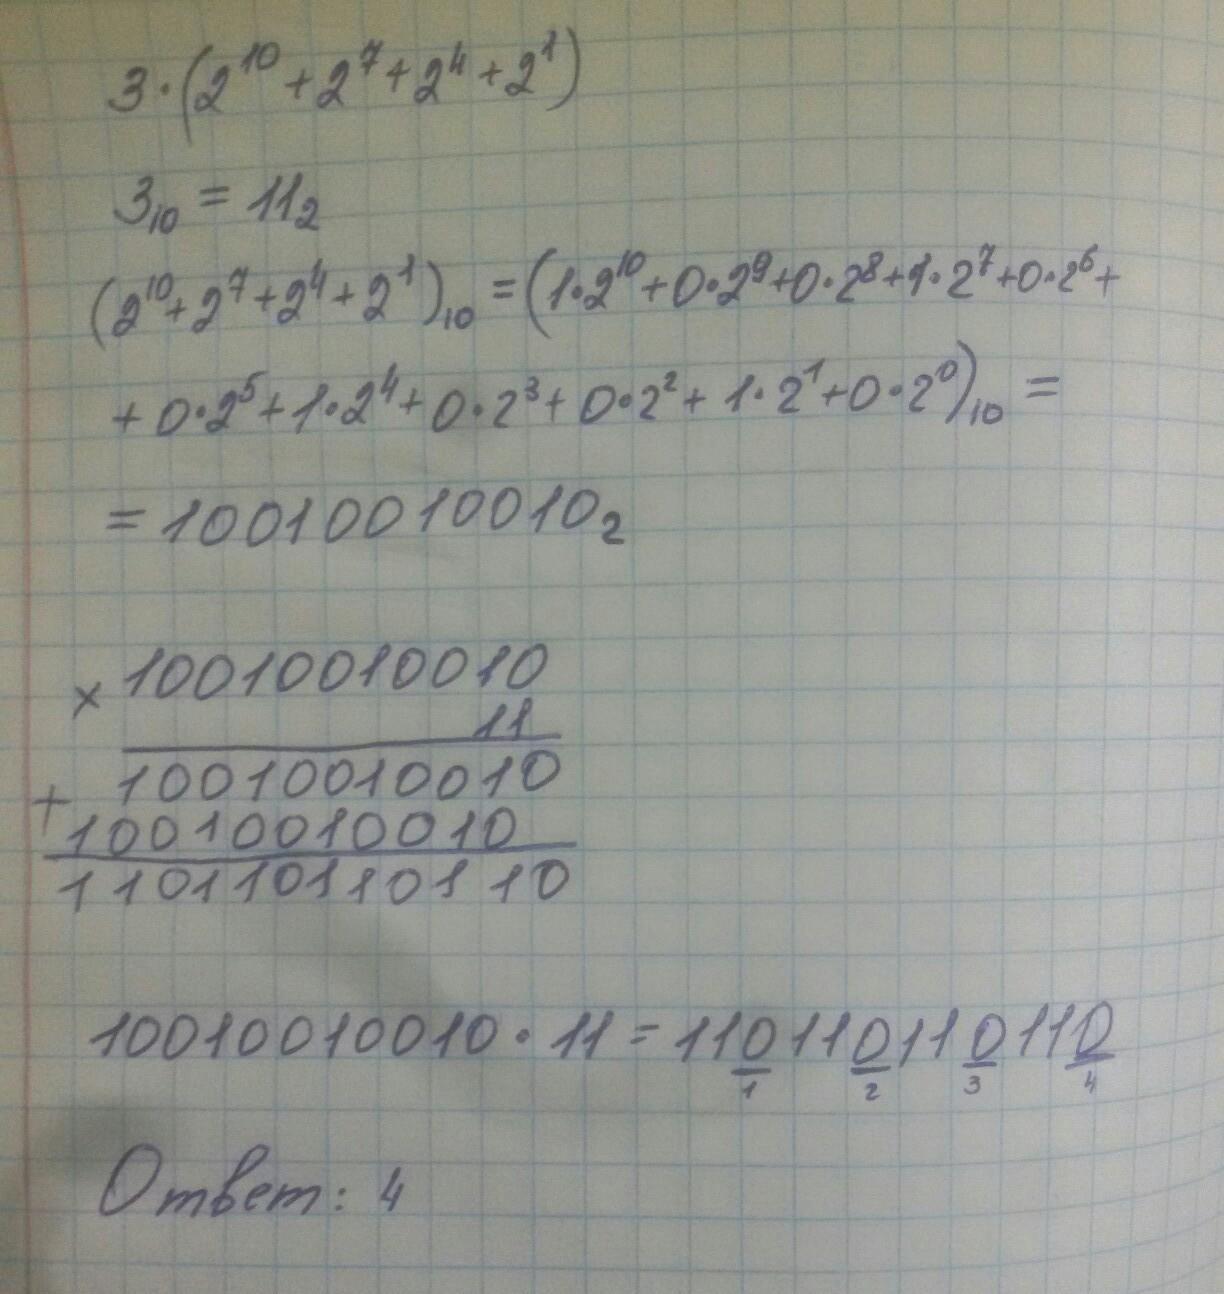 3·(2¹⁰+2⁷+2⁴+2¹)
3₁₀ = 11₂
(2¹⁰+2⁷+2⁴+2¹)₁₀ = (1·2¹⁰+0·2⁹+0·2⁸+1·2⁷+0·2⁶+
+0·2⁵+1·2⁴+0·2³+0·2²+1·2¹+0·2⁰)₁₀ =
= 10010010010₂
× 10010010010
11
10010010010
+
10010010010
110110110110
10010010010·11 = 110110110110
1 2 3 4
Ответ: 4